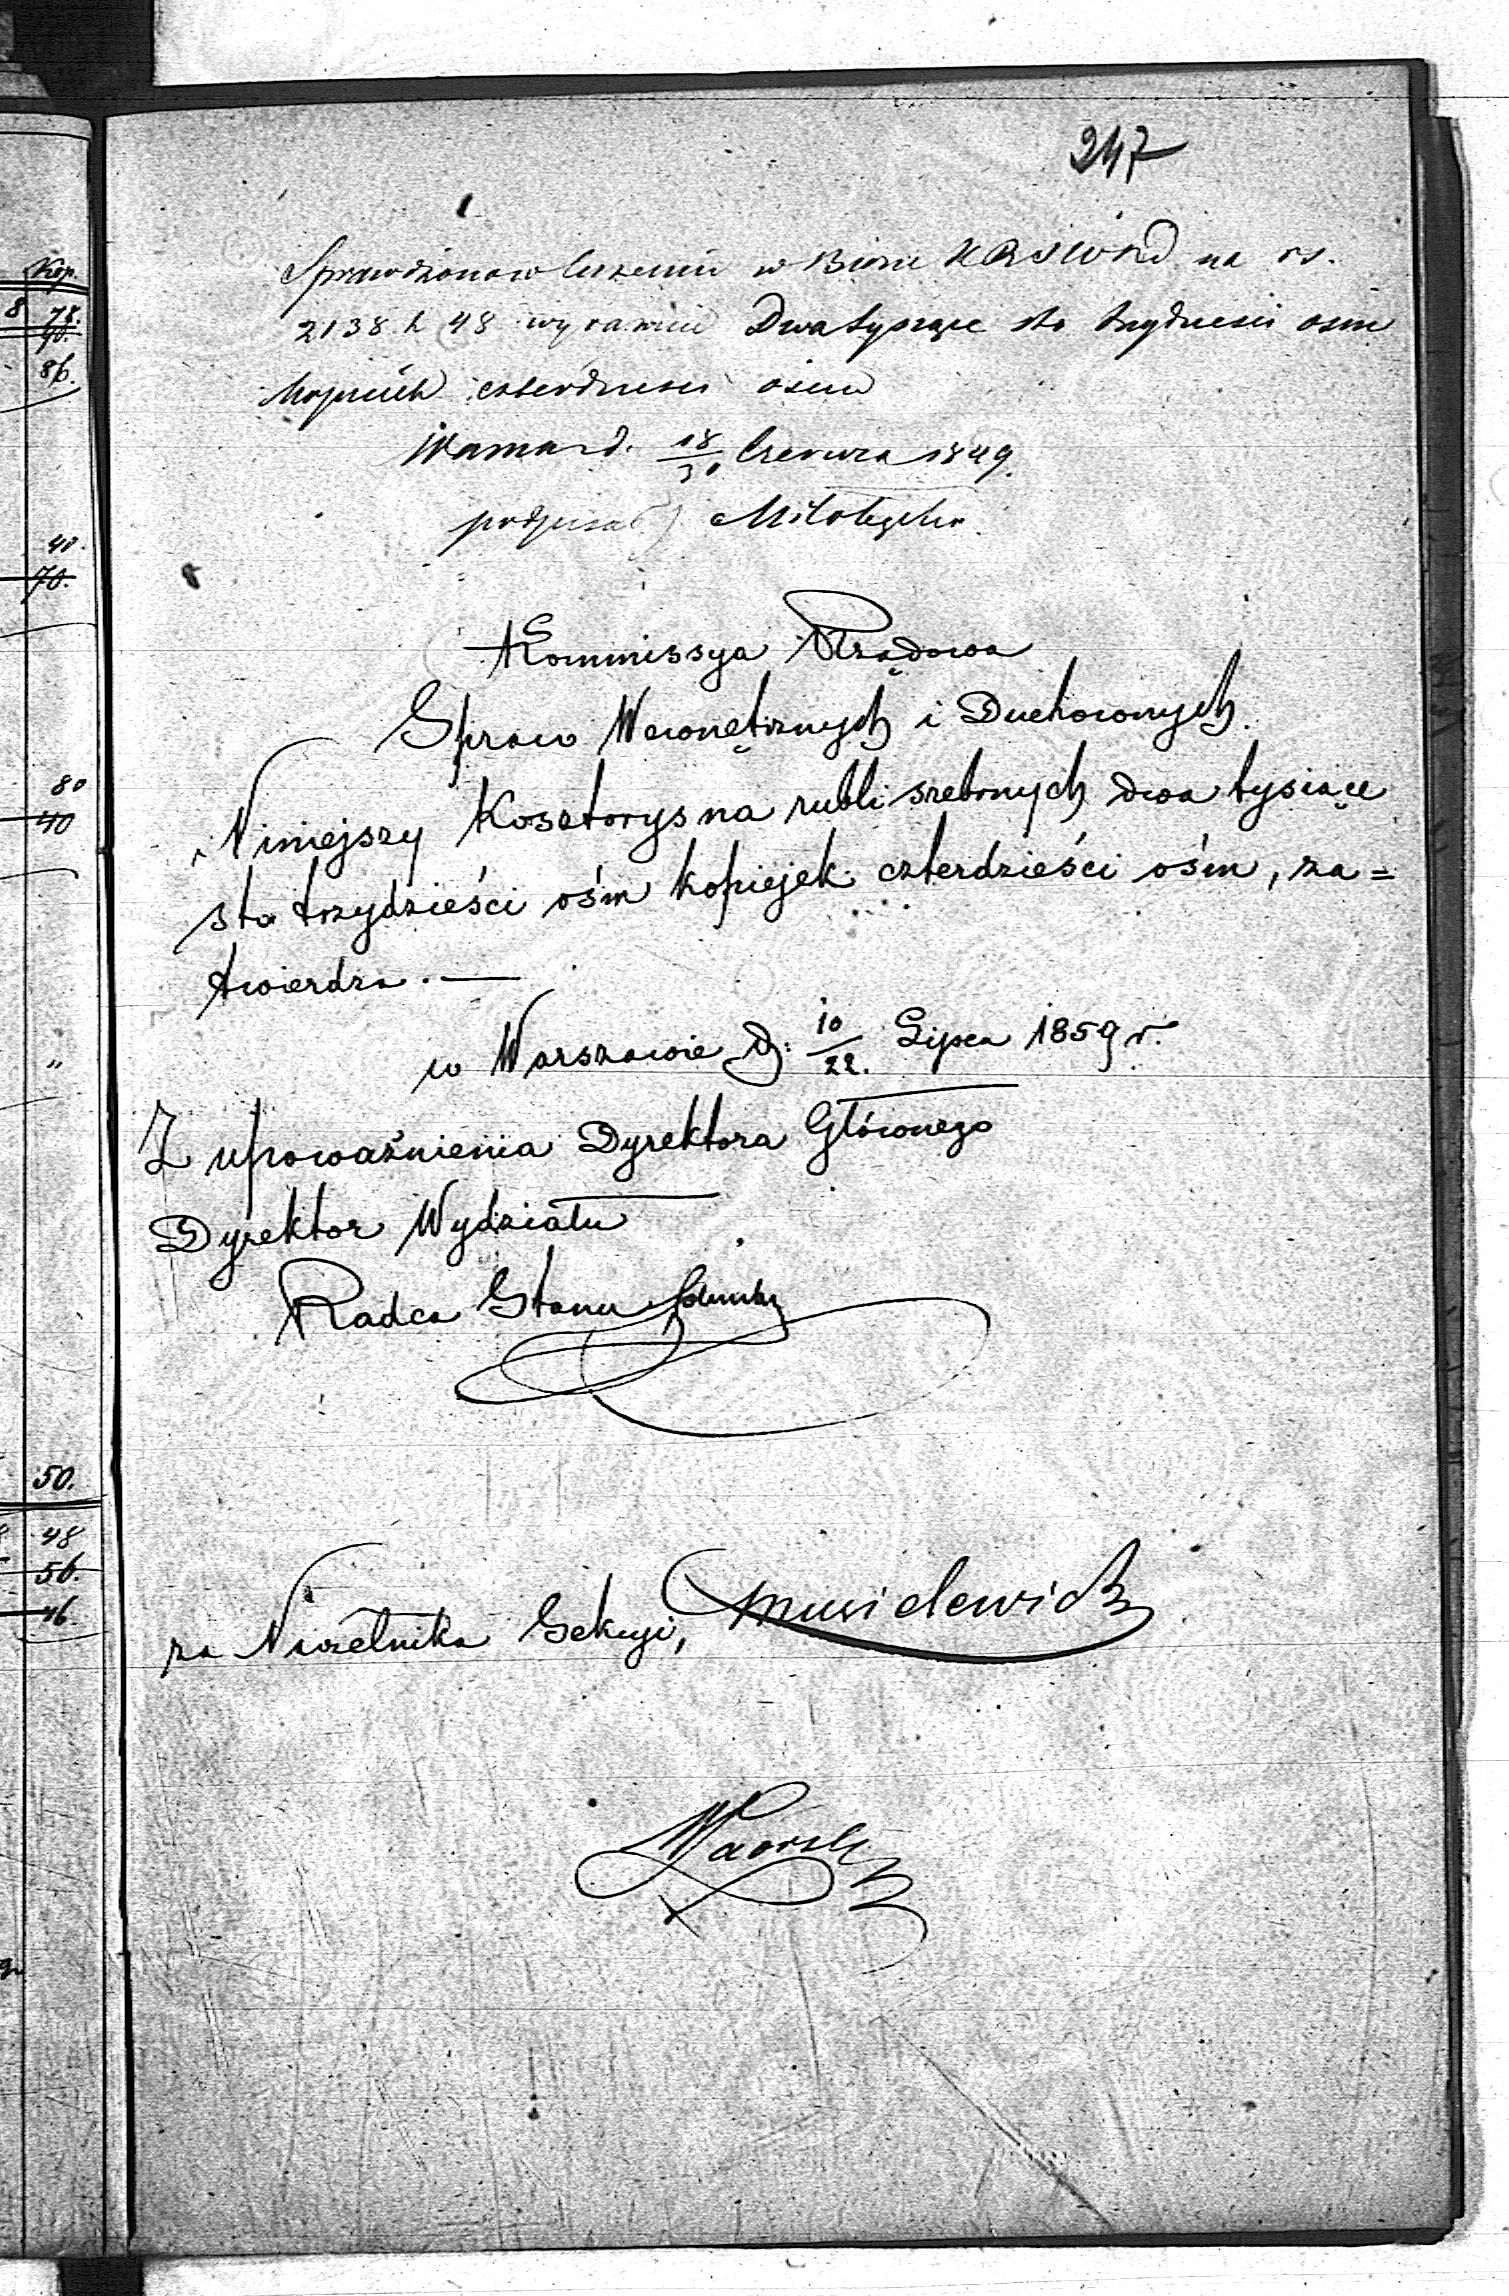 247
Sprawdzono w liczeniu w Biórze K R S W i D na rs.
2138 k 48 wyraźnie Dwa tysiące sto trzydzieści osm
kopiiek czterdzieści osim
Warszawa d. 18/30 Czerwca 1849.
podpisał)
Kommissya Rządowa
Spraw Wewnętrznych i Duchownych.
Niniejszy Kosztorys na rubli srebrnych dwa tysiące
sto trzydzieści ośm kopiejek czterdzieści ośm, za=
twierdza. —
w Warszawie d. 10/22. Lipca 1859 r.
Z upoważnienia Dyrektora Głównego
Dyrektor Wydziału
Radca Stanu
za Naczelnika Sekcyi,
Kop.
8 78.
70.
86.
40.
70.
80
40
"
50.
48
56.
46.